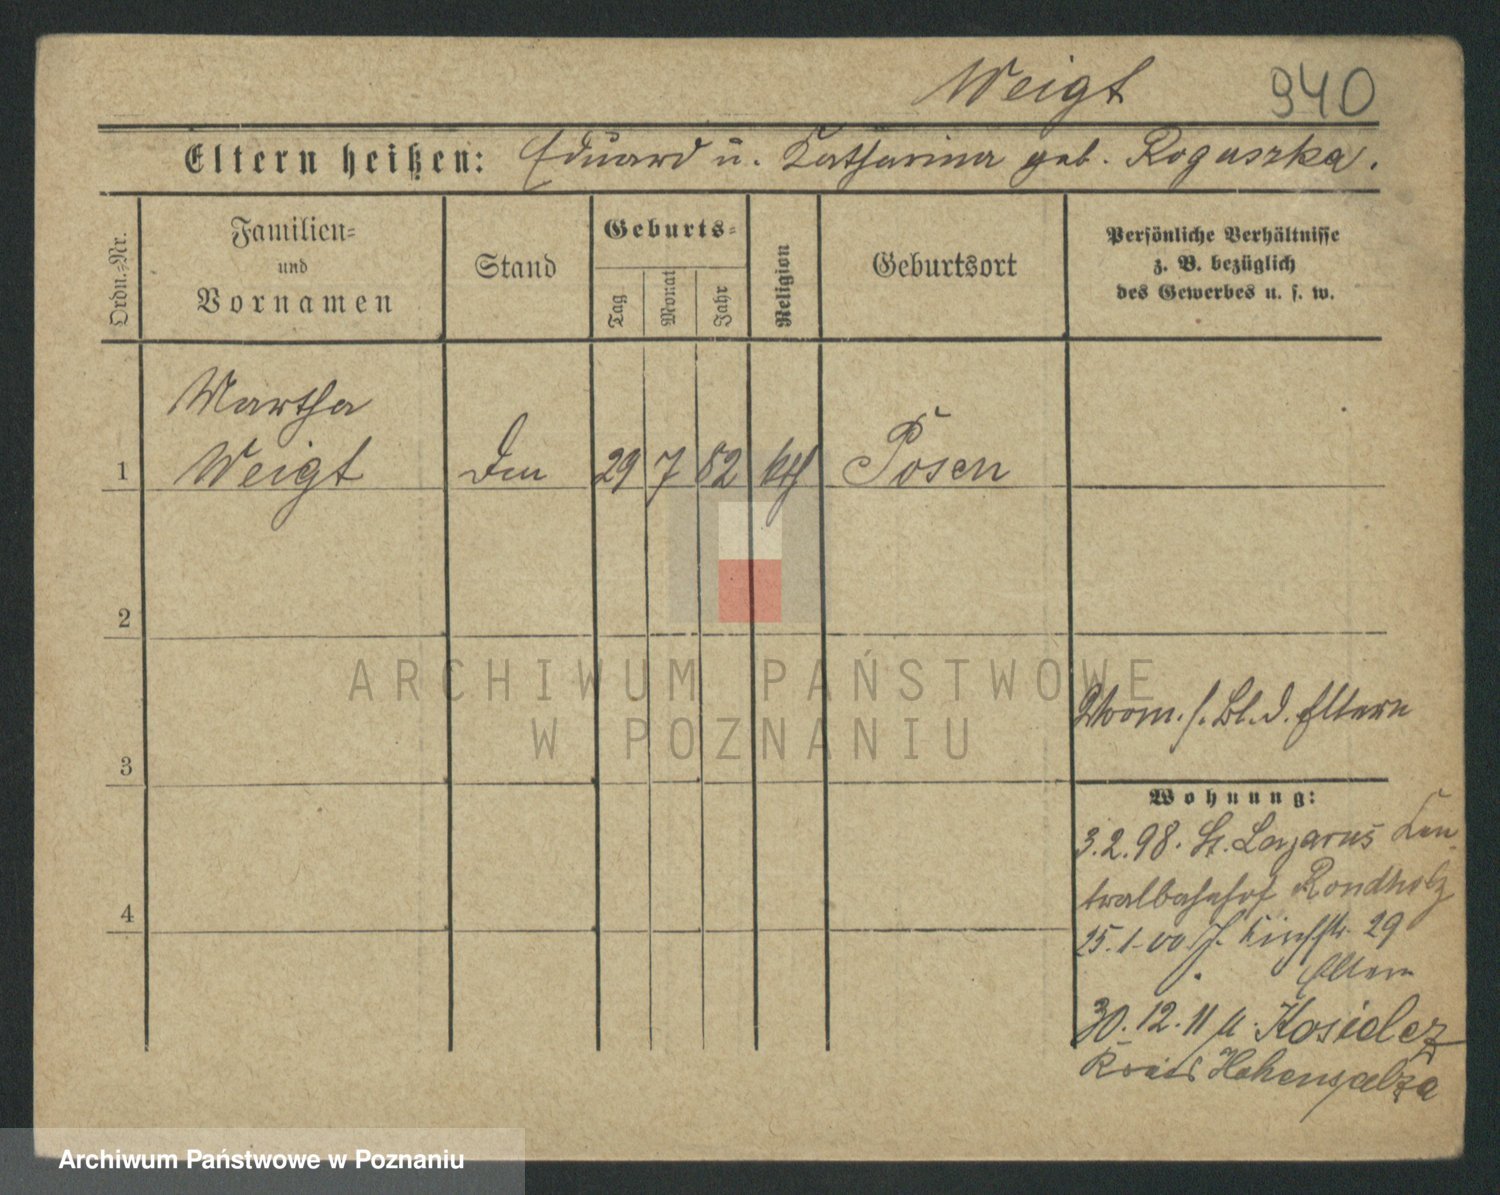 Weigt 940
Eltern heißen: Eduard u. Katharina geb. Roguszka.
Ordn.-Nr.
Familien- und Vornamen
Stand
Geburts-
Tag
Monat
Jahr
Religion
Geburtsort
Persönliche Verhältnisse
z. B. bezüglich
des Gewerbes u. s. w.
Martha
1 Weigt 29 7 82 kth Posen
2
ARCHIWUM PAŃSTWOWE
W POZNANIU
s. Bl. d. Eltern
3
Wohnung:
3.2.98. St. Lazarus Cen-
tralbahnhof Rondholz
4
25.1.00 J. Kirchstr. 29
Eltern
30.12.11 n. Kosielez
Kreis Hohensalza
Archiwum Państwowe w Poznaniu